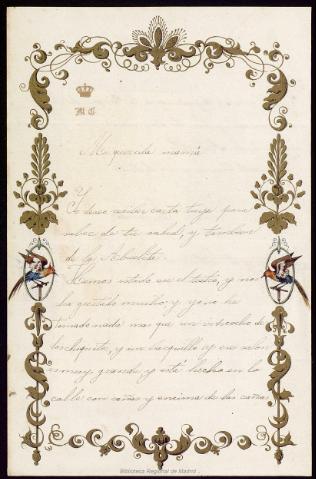 M C
Mi querida mamá
Yo deseo recibir carta tuya para
saber de tu salud, y tambien
de la Abuelita.
Hemos estado en el teatro, y nos
ha gustado mucho, y yo no he
tomado nada mas que un
chiquito, y un barquillo y ese salon
muy grande y está hecho en la
calle con cañas y encima de las cañas
Biblioteca Regional de Madrid